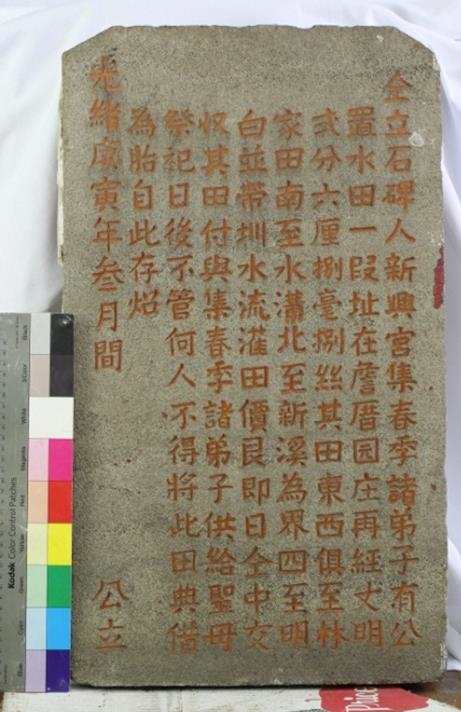 仝立石碑人新興宮集春季諸弟子有公
置水田一段址在詹厝园庄再經丈明
弍分六厘捌毫捌絲其田東西俱至林
家田南至水溝北至新溪為界四至明
白並帶圳水流灌田價艮即日仝中交
收其田付與集春季諸弟子供給聖母
祭祀日後不管何人不得將此田典借
為胎自此存炤
光緒庚寅年叄月間 公立
Kodak Color Control Patches
Blue
Cyan
Green
Yellow
Red
Magenta
White
3/Color
Black
Price